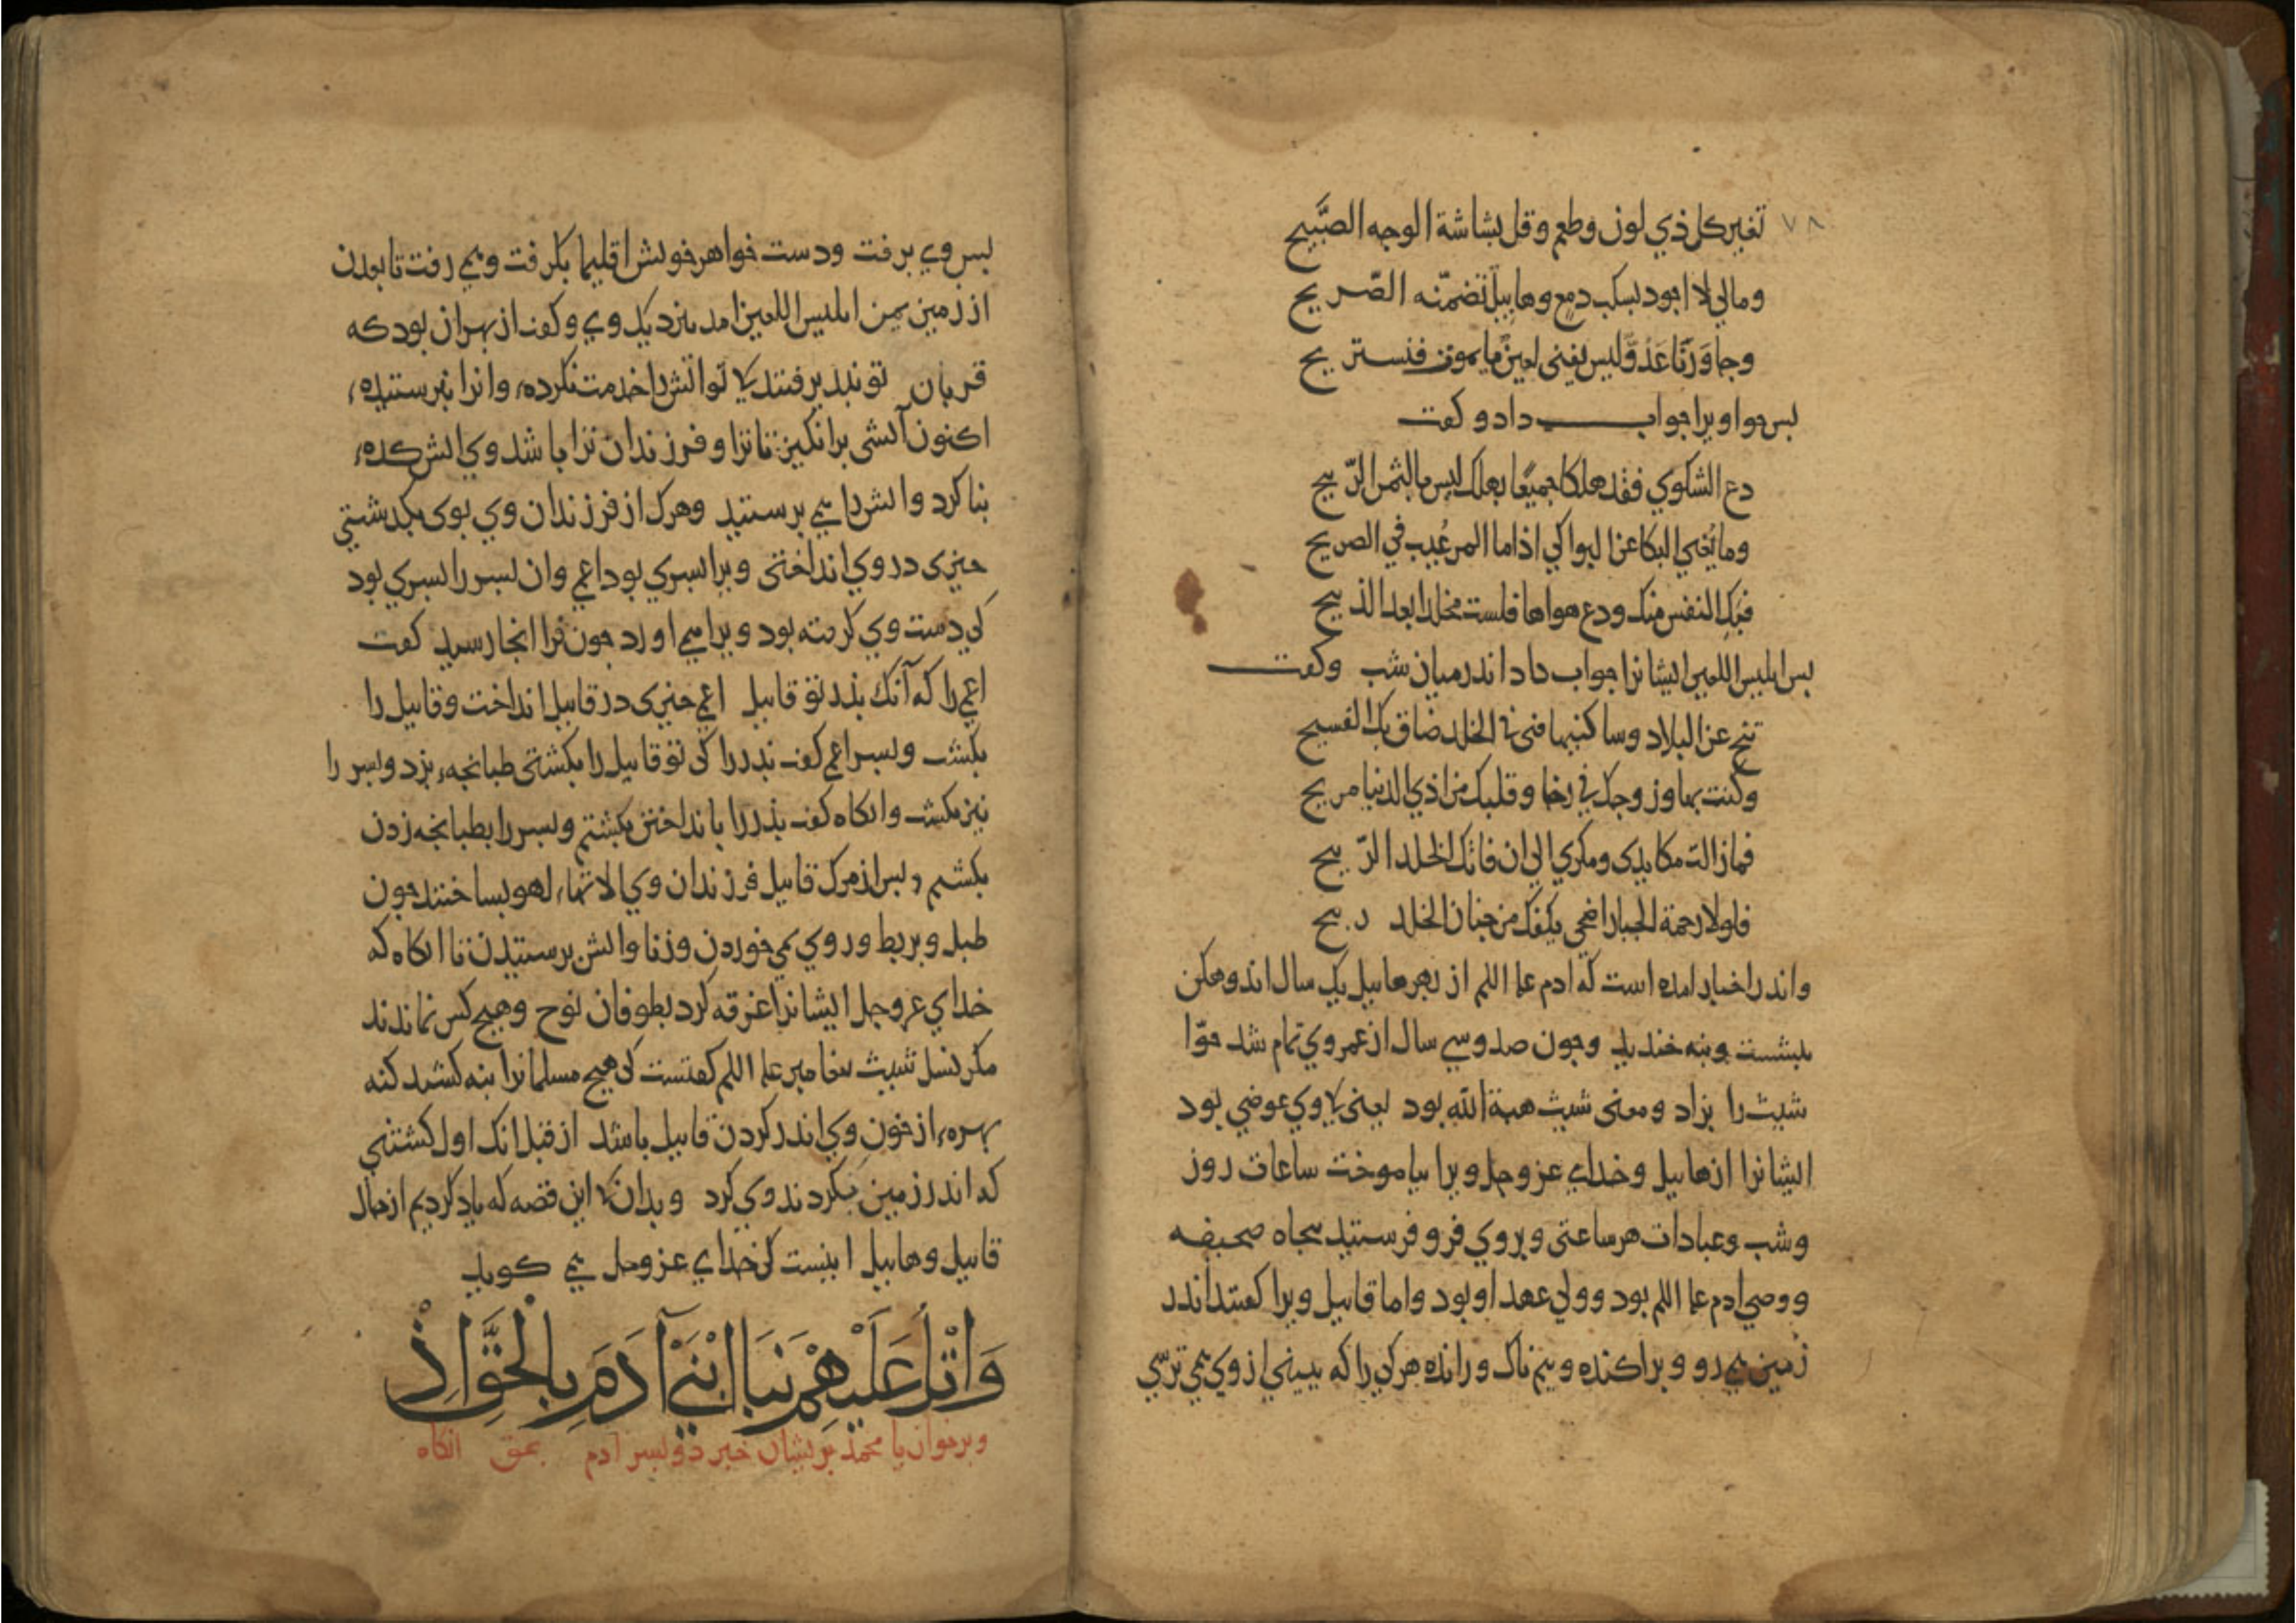 ٧٨
تغير كل ذي لون وطعم وقل بشاشة الوجه الصَّبيح
ومالي لا اجود بسكب دمع وهابيل تضمّنه الضّريح
وجاوَرَنا عَدوّ ليس يفنى لعين ما يموت فنستريح
بس حوا ويرا جواب داد و كفت
دع الشكوي فقد هلكا جميعًا بهلك ليس بالثمن الرّبيح
وما يُغني البكا عن البواكي اذا ما المرء غُيب في الضريح
فبَكِ النفس منك ودع هواها فلست مخلدا بعد الذبيح
بس ابليس اللعين ايشانرا جواب داد اندر ميان شب وكفت
تنح عن البلاد وساكنيها فنى في الخلد ضاق بك الفسيح
وكنت بها وزوجك في رخا وقلبك من اذي الدنيا مريح
فما زالت مكايدى ومكري الي ان فاتك الخلد الرّبيح
فلولا رحمة الجبار اضحى بكفك من جنان الخلد ريح
واندر اخبار امده است كه ادم علم اللم از بهر هابيل يك سال اندوهكن
بنشست وبنه خنديد وجون صد وسي سال از عمر وي تمام شد حوّا
شيث را بزاد ومعنى شيث هبة الله بود يعنى كا وي عوضي بود
ايشانرا از هابيل وخداي عز وجل ويرا بياموخت ساعات روز
وشب وعبادات هر ساعتى وبروي فرو فرستيد بنجاه صحيفه
ووصي ادم علم اللم بود وولي عهد او بود واما قابيل ويرا كفتند اندر
زمين مي رو وبراكنده وبيم ناك ورانده هر كي را كه ببيني از وي مي ترسي
بس وي برفت ودست خواهر خويش اقليما بكرفت ومي رفت تا بعدن
از زمين يمن ابليس اللعين امد بنزديك وي وكفت از بهر ان بود كه
قربان تو نبذيرفتند كا تو اتش را خدمت نكرده، وانرا نبرستيده،
اكنون آتشى برانكيز تا ترا وفرزندان ترا باشد وي اتش كده،
بنا كرد واتش را مي برستيد وهرك از فرزندان وي بوى بكدشتي
جيزى در وي انداختى ويرا بسري بود اعمي وان بسر را بسري بود
كي دست وي كرفته بود ويرا مي اورد جون فرا انجا رسيد كفت
اعمي را كه آنك بذر تو قابيل اعمي جيزى در قابيل انداخت وقابيل را
بكشت وبسر اعمي كفت بذر را كى تو قابيل را بكشتى طبانجه، بزد وبسر را
نيز بكشت وانكاه كفت بذر را بانداختن بكشتم وبسر را بطبانجه زدن
بكشتم وبس از مرك قابيل فرزندان وي الاتها، لهو بساختند جون
طبل وبربط وروي بمي خوردن وزنا واتش برستيدن تا انكاه كه
خداي عز وجل ايشانرا غرقه كرد بطوفان نوح وهيج كس نماندند
مكر نسل شيث بيغامبر علم اللم كفتست كى هيج مسلمانرا بنه كشند كنه
بهره، از خون وي اندر كردن قابيل باشد از قبل انك اول كشتني
كه اندر زمين بكردند وي كرد وبدان كا اين قصه كه ياد كرديم از حال
قابيل وهابيل اينست كى خداي عز وجل مي كويد
وَاتْلُ عَلَيْهِمْ نَبَا ابْنَيْ آدَمَ بِالْحَقِّ اِذْ
وبرخوان يا محمد بريشان خبر دو بسر ادم بحق انكاه